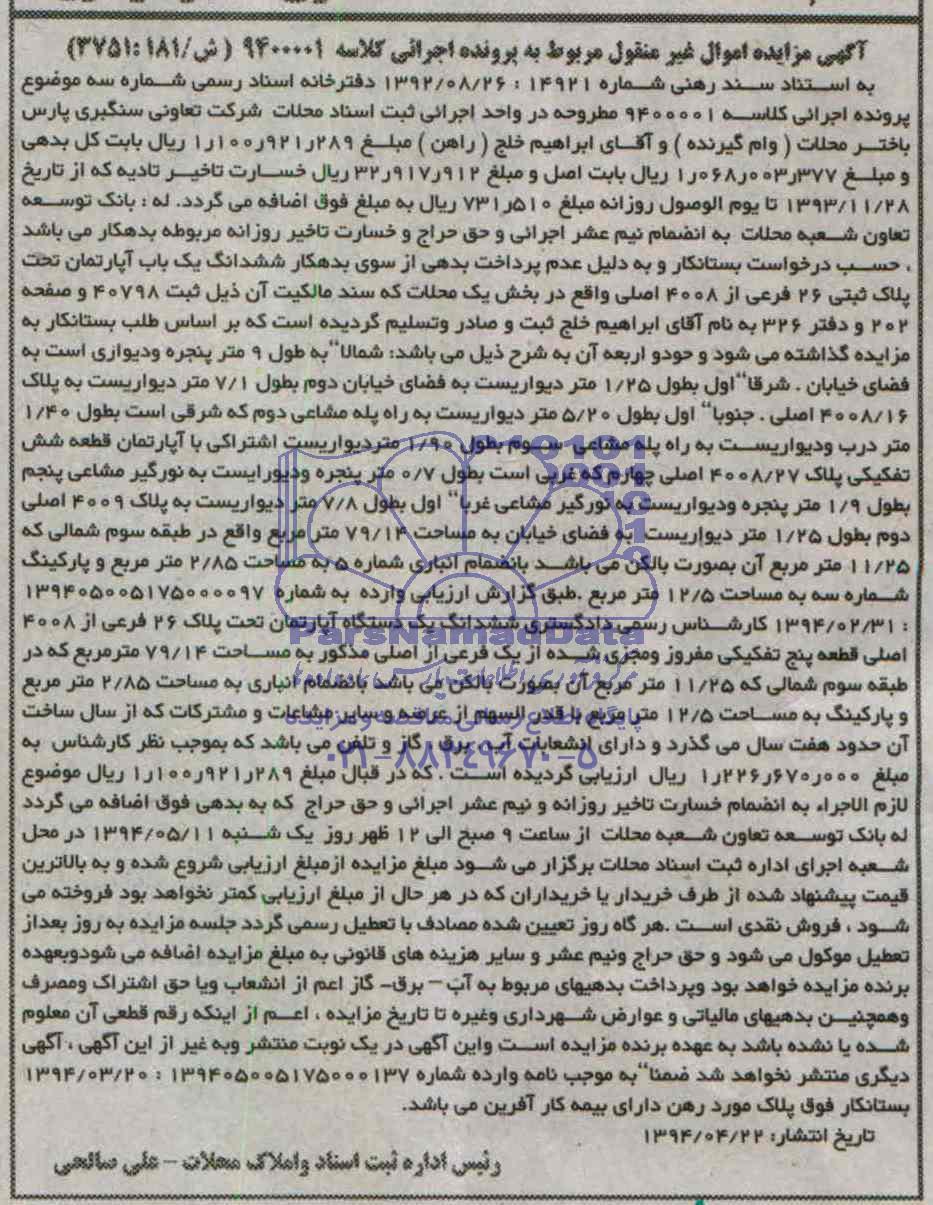 آگهی مزایده اموال غیر منقول مربوط به پرونده اجرائی کلاسه ۹۴۰۰۰۰۱ ( ش/۱۸۱: ۳۷۵۱)
به استناد سند رهنی شماره ۱۴۹۲۱ : ۱۳۹۲/۰۸/۲۶ دفترخانه اسناد رسمی شماره سه موضوع
پرونده اجرائی کلاسه ۹۴۰۰۰۰۱ مطروحه در واحد اجرائی ثبت اسناد محلات شرکت تعاونی سنگبری پارس
باختر محلات ( وام گیرنده ) و آقای ابراهیم خلج ( راهن ) مبلغ ۱٫۱۰۰٫۹۲۱٫۲۸۹ ریال بابت کل بدهی
و مبلغ ۱٫۰۶۸٫۰۰۳٫۳۷۷ ریال بابت اصل و مبلغ ۳۲٫۹۱۷٫۹۱۲ ریال خسارت تاخیر تادیه که از تاریخ
۱۳۹۳/۱۱/۲۸ تا یوم الوصول روزانه مبلغ ۷۳۱٫۵۱۰ ریال به مبلغ فوق اضافه می گردد. له : بانک توسعه
تعاون شعبه محلات به انضمام نیم عشر اجرائی و حق حراج و خسارت تاخیر روزانه مربوطه بدهکار می باشد
، حسب درخواست بستانکار و به دلیل عدم پرداخت بدهی از سوی بدهکار ششدانگ یک باب آپارتمان تحت
پلاک ثبتی ۲۶ فرعی از ۴۰۰۸ اصلی واقع در بخش یک محلات که سند مالکیت آن ذیل ثبت ۴۰۷۹۸ و صفحه
۲۰۲ و دفتر ۳۲۶ به نام آقای ابراهیم خلج ثبت و صادر وتسلیم گردیده است که بر اساس طلب بستانکار به
مزایده گذاشته می شود و حودو اربعه آن به شرح ذیل می باشد: شمالا“ به طول ۹ متر پنجره ودیواری است به
فضای خیابان . شرقا“اول بطول ۱/۲۵ متر دیواریست به فضای خیابان دوم بطول ۷/۱ متر دیواریست به پلاک
۴۰۰۸/۱۶ اصلی . جنوبا“ اول بطول ۵/۲۰ متر دیواریست به راه پله مشاعی دوم که شرقی است بطول ۱/۴۰
متر درب ودیواریست به راه پله مشاعی سوم بطول ۱/۹۰ متردیواریست اشتراکی با آپارتمان قطعه شش
تفکیکی پلاک ۴۰۰۸/۲۷ اصلی چهارم که غربی است بطول ۰/۷ متر پنجره ودیورایست به نورگیر مشاعی پنجم
بطول ۱/۹ متر پنجره ودیواریست به نورگیر مشاعی غربا“ اول بطول ۷/۸ متر دیواریست به پلاک ۴۰۰۹ اصلی
دوم بطول ۱/۲۵ متر دیواریست به فضای خیابان به مساحت ۷۹/۱۴ متر مربع واقع در طبقه سوم شمالی که
۱۱/۲۵ متر مربع آن بصورت بالکن می باشد بانضمام انباری شماره ۵ به مساحت ۲/۸۵ متر مربع و پارکینگ
شماره سه به مساحت ۱۲/۵ متر مربع .طبق گزارش ارزیابی وارده به شماره ۱۳۹۴۰۵۰۰۵۱۷۵۰۰۰۰۹۷
: ۱۳۹۴/۰۲/۳۱ کارشناس رسمی دادگستری ششدانگ یک دستگاه آپارتمان تحت پلاک ۲۶ فرعی از ۴۰۰۸
اصلی قطعه پنج تفکیکی مفروز ومجزی شده از یک فرعی از اصلی مذکور به مساحت ۷۹/۱۴ مترمربع که در
طبقه سوم شمالی که ۱۱/۲۵ متر مربع آن بصورت بالکن می باشد بانضمام انباری به مساحت ۲/۸۵ متر مربع
و پارکینگ به مساحت ۱۲/۵ متر مربع با قدر السهم از عرصه و سایر مشاعات و مشترکات که از سال ساخت
آن حدود هفت سال می گذرد و دارای انشعابات آب، برق ، گاز و تلفن می باشد که بموجب نظر کارشناس به
مبلغ ۱٫۲۲۶٫۶۷۰٫۰۰۰ ریال ارزیابی گردیده است . که در قبال مبلغ ۱٫۱۰۰٫۹۲۱٫۲۸۹ ریال موضوع
لازم الاجراء به انضمام خسارت تاخیر روزانه و نیم عشر اجرائی و حق حراج که به بدهی فوق اضافه می گردد
له بانک توسعه تعاون شعبه محلات از ساعت ۹ صبح الی ۱۲ ظهر روز یک شنبه ۱۳۹۴/۰۵/۱۱ در محل
شعبه اجرای اداره ثبت اسناد محلات برگزار می شود مبلغ مزایده ازمبلغ ارزیابی شروع شده و به بالاترین
قیمت پیشنهاد شده از طرف خریدار یا خریداران که در هر حال از مبلغ ارزیابی کمتر نخواهد بود فروخته می
شود ، فروش نقدی است .هر گاه روز تعیین شده مصادف با تعطیل رسمی گردد جلسه مزایده به روز بعداز
تعطیل موکول می شود و حق حراج ونیم عشر و سایر هزینه های قانونی به مبلغ مزایده اضافه می شودوبعهده
برنده مزایده خواهد بود وپرداخت بدهیهای مربوط به آب – برق- گاز اعم از انشعاب ویا حق اشتراک ومصرف
وهمچنین بدهیهای مالیاتی و عوارض شهرداری وغیره تا تاریخ مزایده ، اعم از اینکه رقم قطعی آن معلوم
شده یا نشده باشد به عهده برنده مزایده است واین آگهی در یک نوبت منتشر وبه غیر از این آگهی ، آگهی
دیگری منتشر نخواهد شد ضمنا“ به موجب نامه وارده شماره ۱۳۹۴۰۵۰۰۵۱۷۵۰۰۰۱۳۷ : ۱۳۹۴/۰۳/۲۰
بستانکار فوق پلاک مورد رهن دارای بیمه کار آفرین می باشد.
تاریخ انتشار: ۱۳۹۴/۰۴/۲۲
رئیس اداره ثبت اسناد واملاک محلات – علی صالحی
ParsNamadData
۰۲۱-۸۸۳۴۹۶۷۰-۵